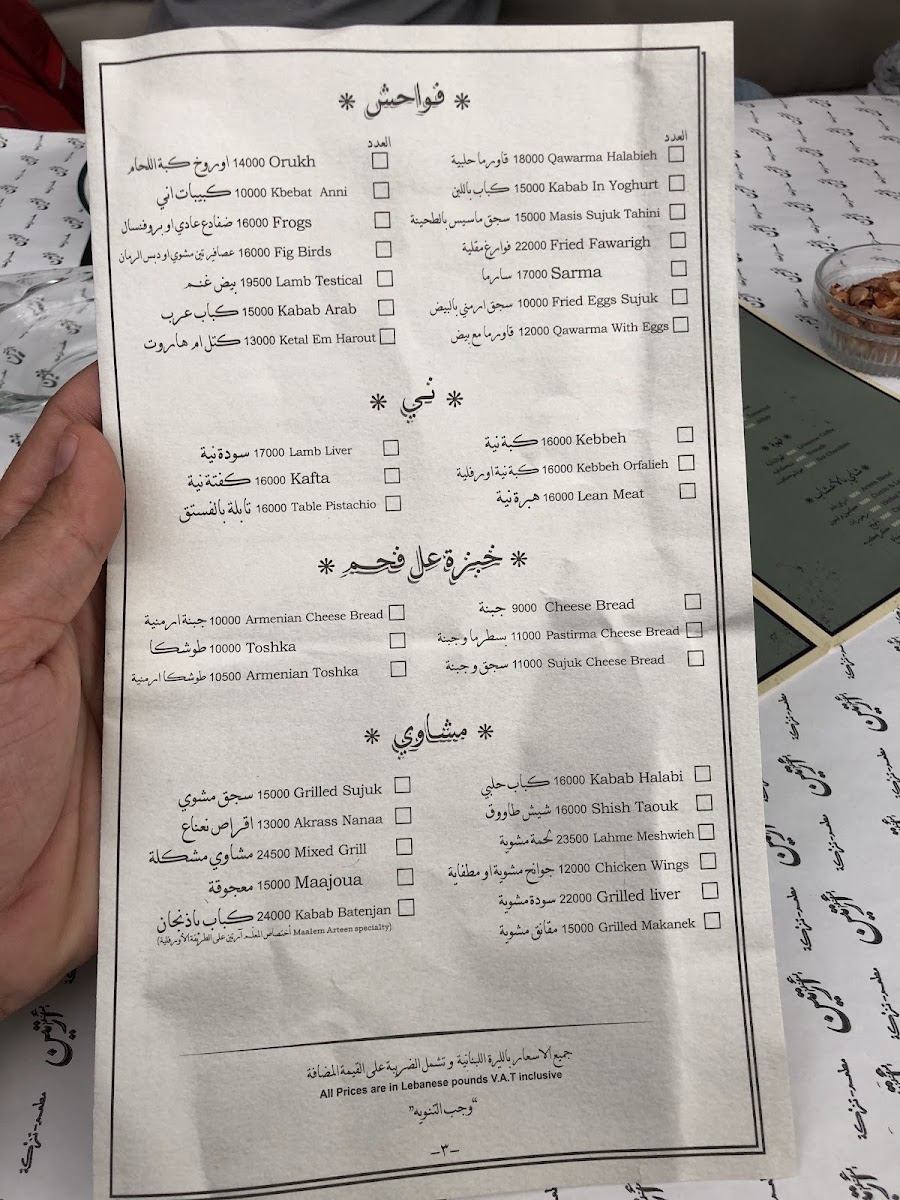 * فواحش *
العدد
قاورما حلبية 18000 Qawarma Halabieh
كباب باللبن 15000 Kabab In Yoghurt
سجق ماسيس بالطحينة 15000 Masis Sujuk Tahini
فوارغ مقلية 22000 Fried Fawarigh
سارما 17000 Sarma
سجق ارمني بالبيض 10000 Fried Eggs Sujuk
قاورما مع بيض 12000 Qawarma With Eggs
العدد
اوروخ كبة اللحام 14000 Orukh
كبيبات اني 10000 Kbebat Anni
ضفادع عادي او بروفنسال 16000 Frogs
عصافير تين مشوي او دبس الرمان 16000 Fig Birds
بيض غنم 19500 Lamb Testical
كباب عرب 15000 Kabab Arab
كتل ام هاروت 13000 Ketal Em Harout
* ني *
كبة نية 16000 Kebbeh
كبة نية اورفلية 16000 Kebbeh Orfalieh
هبرة نية 16000 Lean Meat
سودة نية 17000 Lamb Liver
كفتة نية 16000 Kafta
تابلة بالفستق 16000 Table Pistachio
* خبزة عل فحم *
جبنة 9000 Cheese Bread
بسطرما وجبنة 11000 Pastirma Cheese Bread
سجق وجبنة 11000 Sujuk Cheese Bread
جبنة ارمنية 10000 Armenian Cheese Bread
طوشكا 10000 Toshka
طوشكا ارمنية 10500 Armenian Toshka
* مشاوي *
كباب حلبي 16000 Kabab Halabi
شيش طاووق 16000 Shish Taouk
لحمة مشوية 23500 Lahme Meshwieh
جوانح مشوية او مطفاية 12000 Chicken Wings
سودة مشوية 22000 Grilled liver
مقانق مشوية 15000 Grilled Makanek
سجق مشوي 15000 Grilled Sujuk
اقراص نعناع 13000 Akrass Nanaa
مشاوي مشكلة 24500 Mixed Grill
معجوقة 15000 Maajoua
كباب باذنجان 24000 Kabab Batenjan
(أختصاص المعلم آرتين على الطريقة الأورفلية Maalem Arteen specialty)
جميع الاسعار بالليرة اللبنانية وتشمل الضريبة على القيمة المضافة
All Prices are in Lebanese pounds V.A.T inclusive
"وجب التنويه"
-٣-